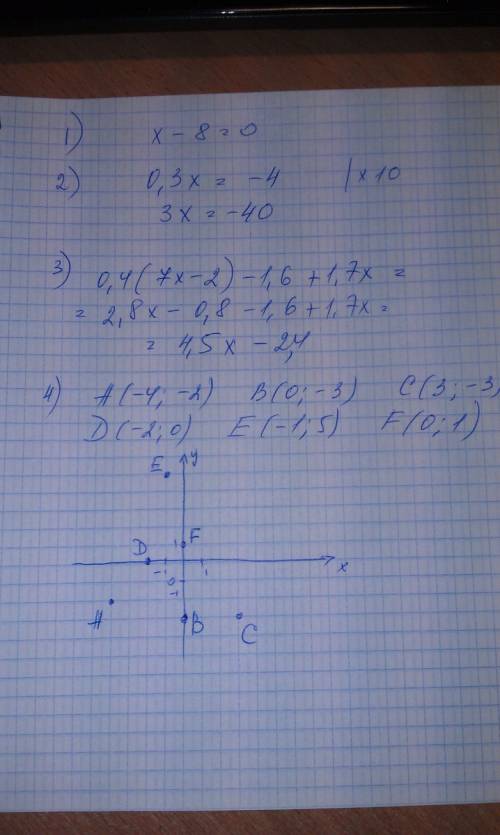 1) x - 8 = 0
2) 0,3x = -4 | x 10
3x = -40
3) 0,4(7x-2) - 1,6 + 1,7x =
= 2,8x - 0,8 - 1,6 + 1,7x =
= 4,5x - 2,4
4) A(-4; -2) B(0; -3) C(3; -3)
D(-2; 0) E(-1; 5) F(0; 1)
E y
1 F
D
-1 1 x
0
-1
A B C